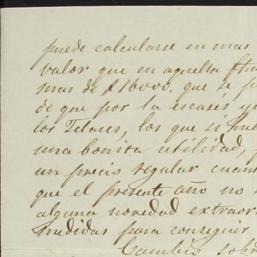 puede calcularse en mas
valor que en aquella
mas de $16000. que se
de que por la escases y
los Telares, los que si
una bonita utilidad,
un precio regular
que el presente año no
alguna novedad extraor
medidas para conseguir
Cambio sobr